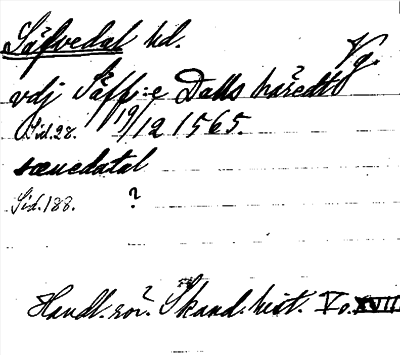 Säfvedal hd. Vg.
vdj Säff:e Dalls häredt
Sid. 28. 19/12 1565.
sæuedatal
Sid. 188. ?
Handl. rör. Skand. hist. Vo. XVII